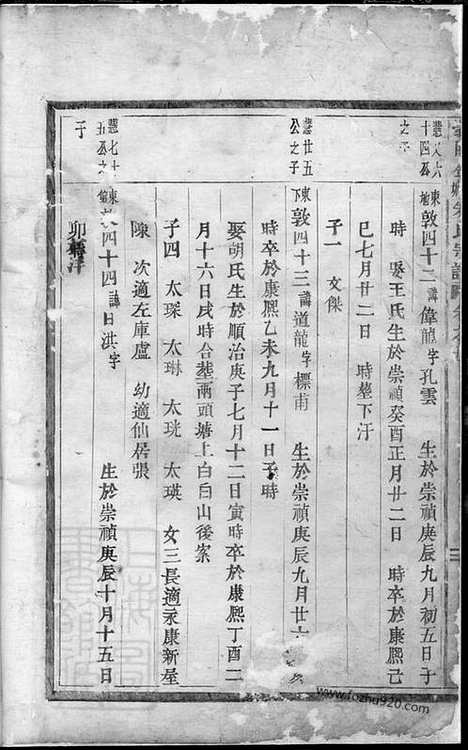 敦四十二諱偉龍字孔雲 生於崇禎庚辰九月初五日子
時 娶王氏生於崇禎癸酉正月廿二日 時卒於康熙己
巳七月廿二日 時塟下汙
子一 文傑
慧廿五公之子
東下敦四十三諱道龍字標甫 生於崇禎庚辰九月廿六
時卒於康熙乙未九月十一日子時
娶胡氏生於順治庚子七月十二日寅時卒於康熙丁酉二
月十六日戌時合塟兩頭塘上白白山後案
子四 太琛 太琳 太珖 太瑛 女三長適永康新屋
陳 次適左庫盧 幼適仙居張
慧七十五公之子
敦四十四諱日洪字 生於崇禎庚辰十月十五日
卯時
www.fozhu920.com